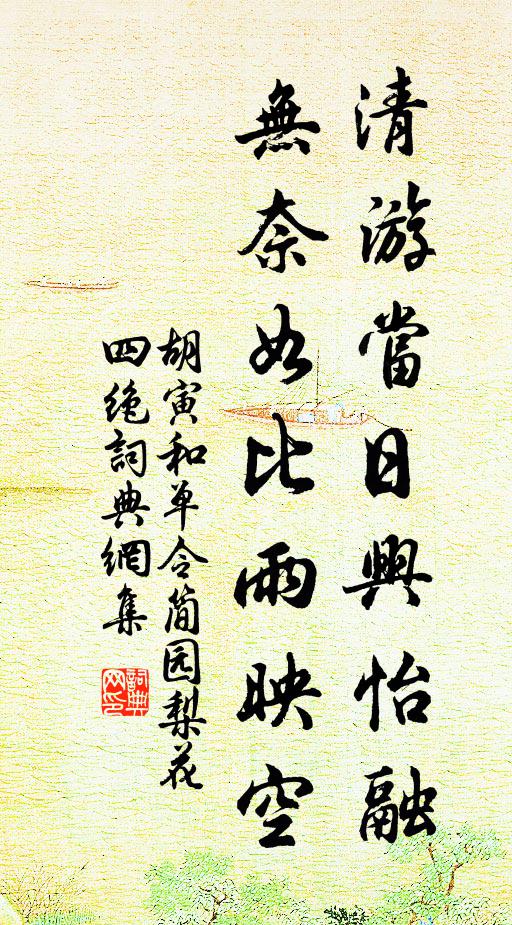 清游當日興怡融
無奈如比雨映空
胡寅和单令簡园梨花
四绝詞典網集
詞典
网印